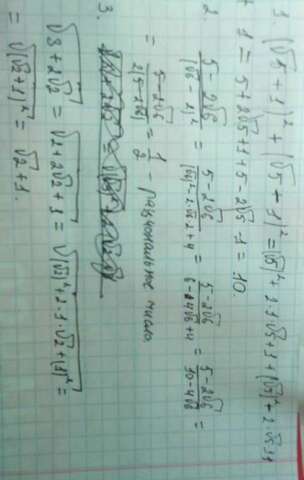 1 (√5 + 1)² + (√5 - 1)² = (√5)² + 2·1√5 + 1 + (√5)² + 2·√5·1
1 = 5 + 2√5 + 1 + 5 - 2√5 - 1 = 10.
2. (5-2√6)/(√6-2)² = (5-2√6)/((√6)²-2·√6·2+4) = (5-2√6)/(6-4√6+4) = (5-2√6)/(10-4√6) =
= (5-2√6)/(2(5-2√6)) = 1/2 - рациональное число.
3.
√(3+2√2) = √(2+2√2+1) = √((√2)²+2·1·√2+(1)²) =
= √((√2+1)²) = √2+1.